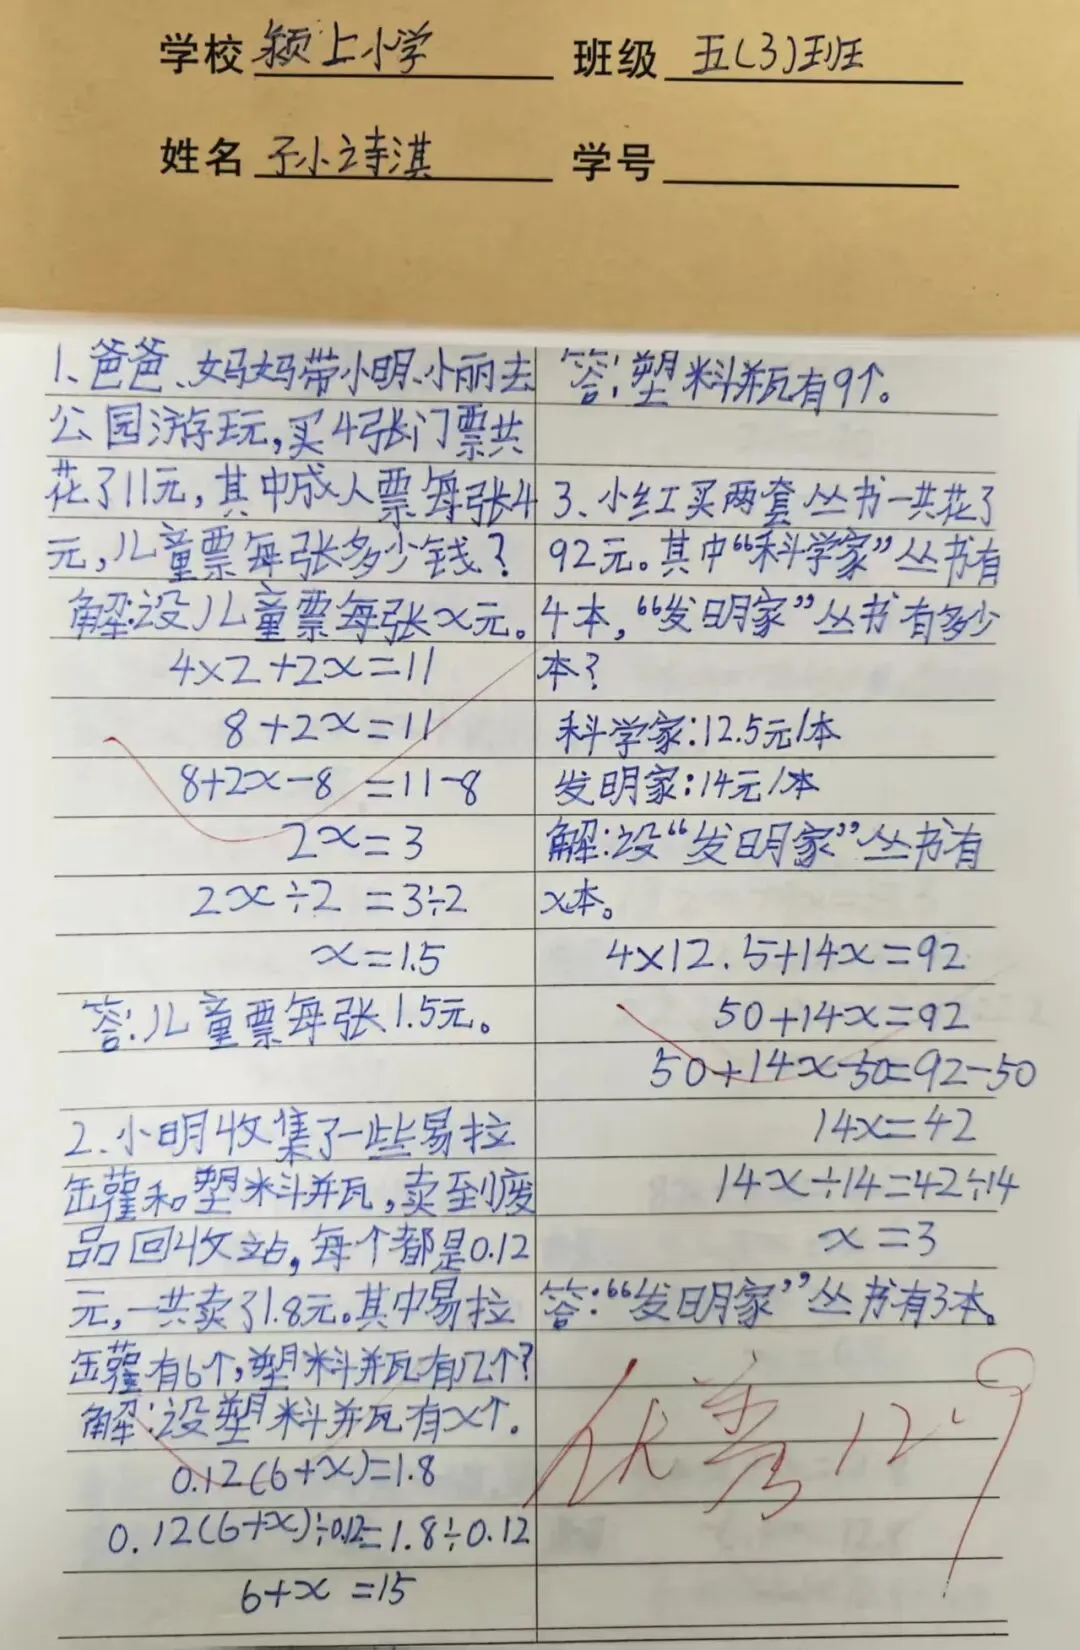 学校 颍上小学 班级 五(3)班
姓名 孙诗淇 学号
1、爸爸、妈妈带小明、小丽去
公园游玩,买4张门票共
花了11元,其中成人票每张4
元,儿童票每张多少钱?
解:设儿童票每张x元。
4×2+2x=11
8+2x=11
8+2x-8=11-8
2x=3
2x÷2=3÷2
x=1.5
答:儿童票每张1.5元。
2、小明收集了一些易拉
罐和塑料瓶,卖到废
品回收站,每个都是0.12
元,一共卖了1.8元。其中易拉
罐有6个,塑料瓶有几个?
解:设塑料瓶有x个。
0.12(6+x)=1.8
0.12(6+x)÷0.12=1.8÷0.12
6+x=15
答:塑料瓶有9个。
3、小红买两套丛书一共花了
92元。其中“科学家”丛书有
4本,“发明家”丛书有多少
本?
科学家:12.5元/本
发明家:14元/本
解:设“发明家”丛书有
x本。
4×12.5+14x=92
50+14x=92
50+14x-50=92-50
14x=42
14x÷14=42÷14
x=3
答:“发明家”丛书有3本。
优秀 12.9